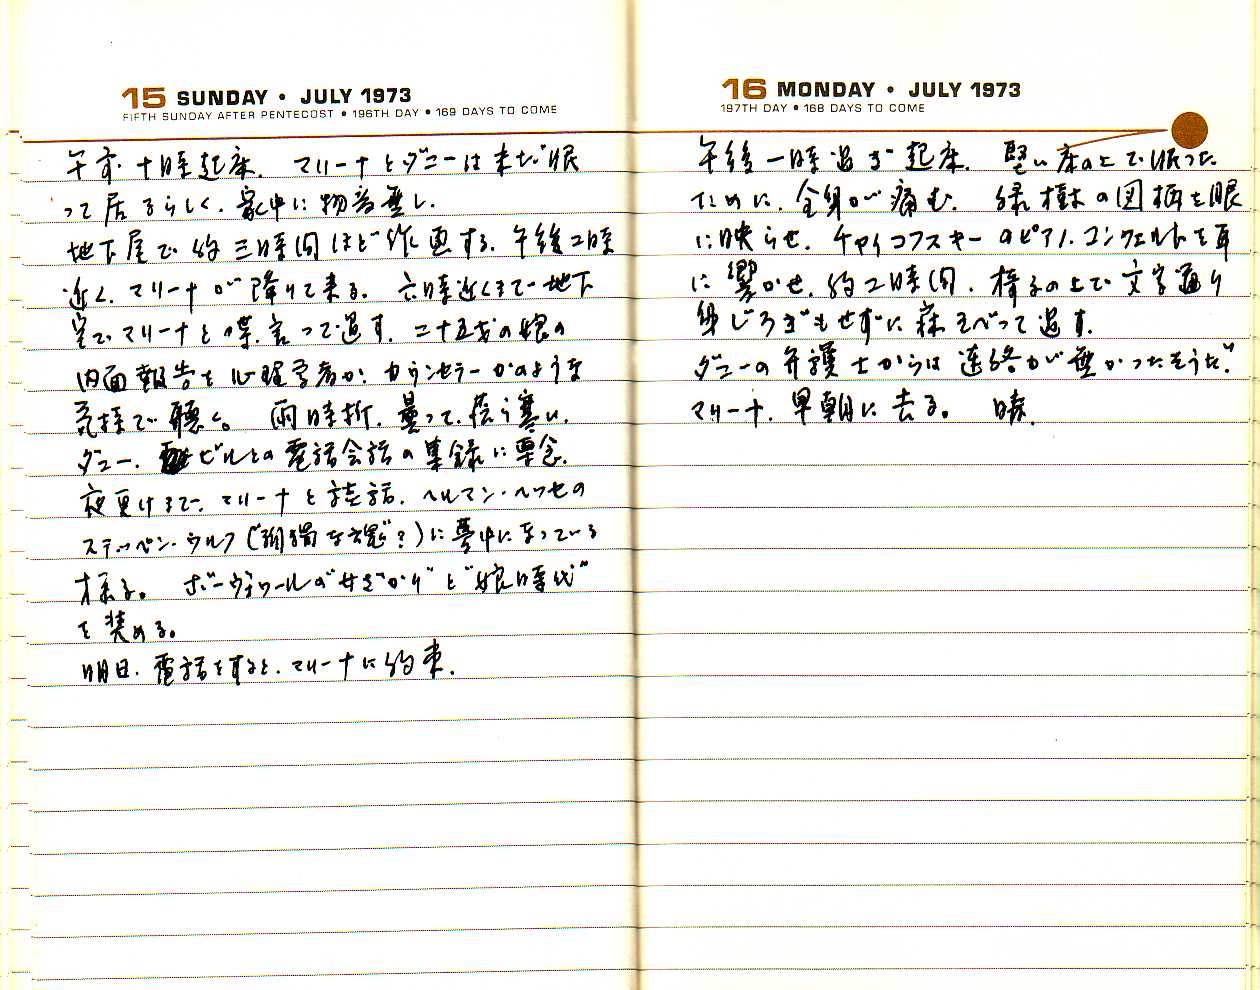 15 SUNDAY • JULY 1973
FIFTH SUNDAY AFTER PENTECOST • 196TH DAY • 169 DAYS TO COME
午前十時起床. マリーナとダニーは未だ眠
って居るらしく、家中に物音無し.
地下屋で約三時間ほど作画する。午後二時
近く、マリーナが降りて来る。六時近くまで地下
室で、マリーナと喋言って過す. 二十五才の娘の
内面報告を心理学者か、カウンセラーかのような
気持で聴く。 雨時折、曇って、薄ら寒い.
ダニー、ビルとの電話会話の集録に専念.
夜更けまで、マリーナと談話. ヘルマン・ヘッセの
ステッペン・ウルフ(“孤独な魂”?)に夢中になっている
様子。 ボーヴォワールの“女ざかり”と“娘時代”
を奨める。
明日、電話をすると、マリーナに約束.
16 MONDAY • JULY 1973
197TH DAY • 168 DAYS TO COME
午後一時過ぎ起床. 堅い床の上で眠った
ために、全身が痛む. 緑樹の図柄を眼
に映らせ、チャイコフスキーのピアノ・コンツェルトを耳
に響かせ、約二時間、椅子の上で文字通り
身じろぎもせずに寝そべって過す.
ダニーの弁護士からは連絡が無かったそうだ.
マリーナ、早朝に去る。 晴.